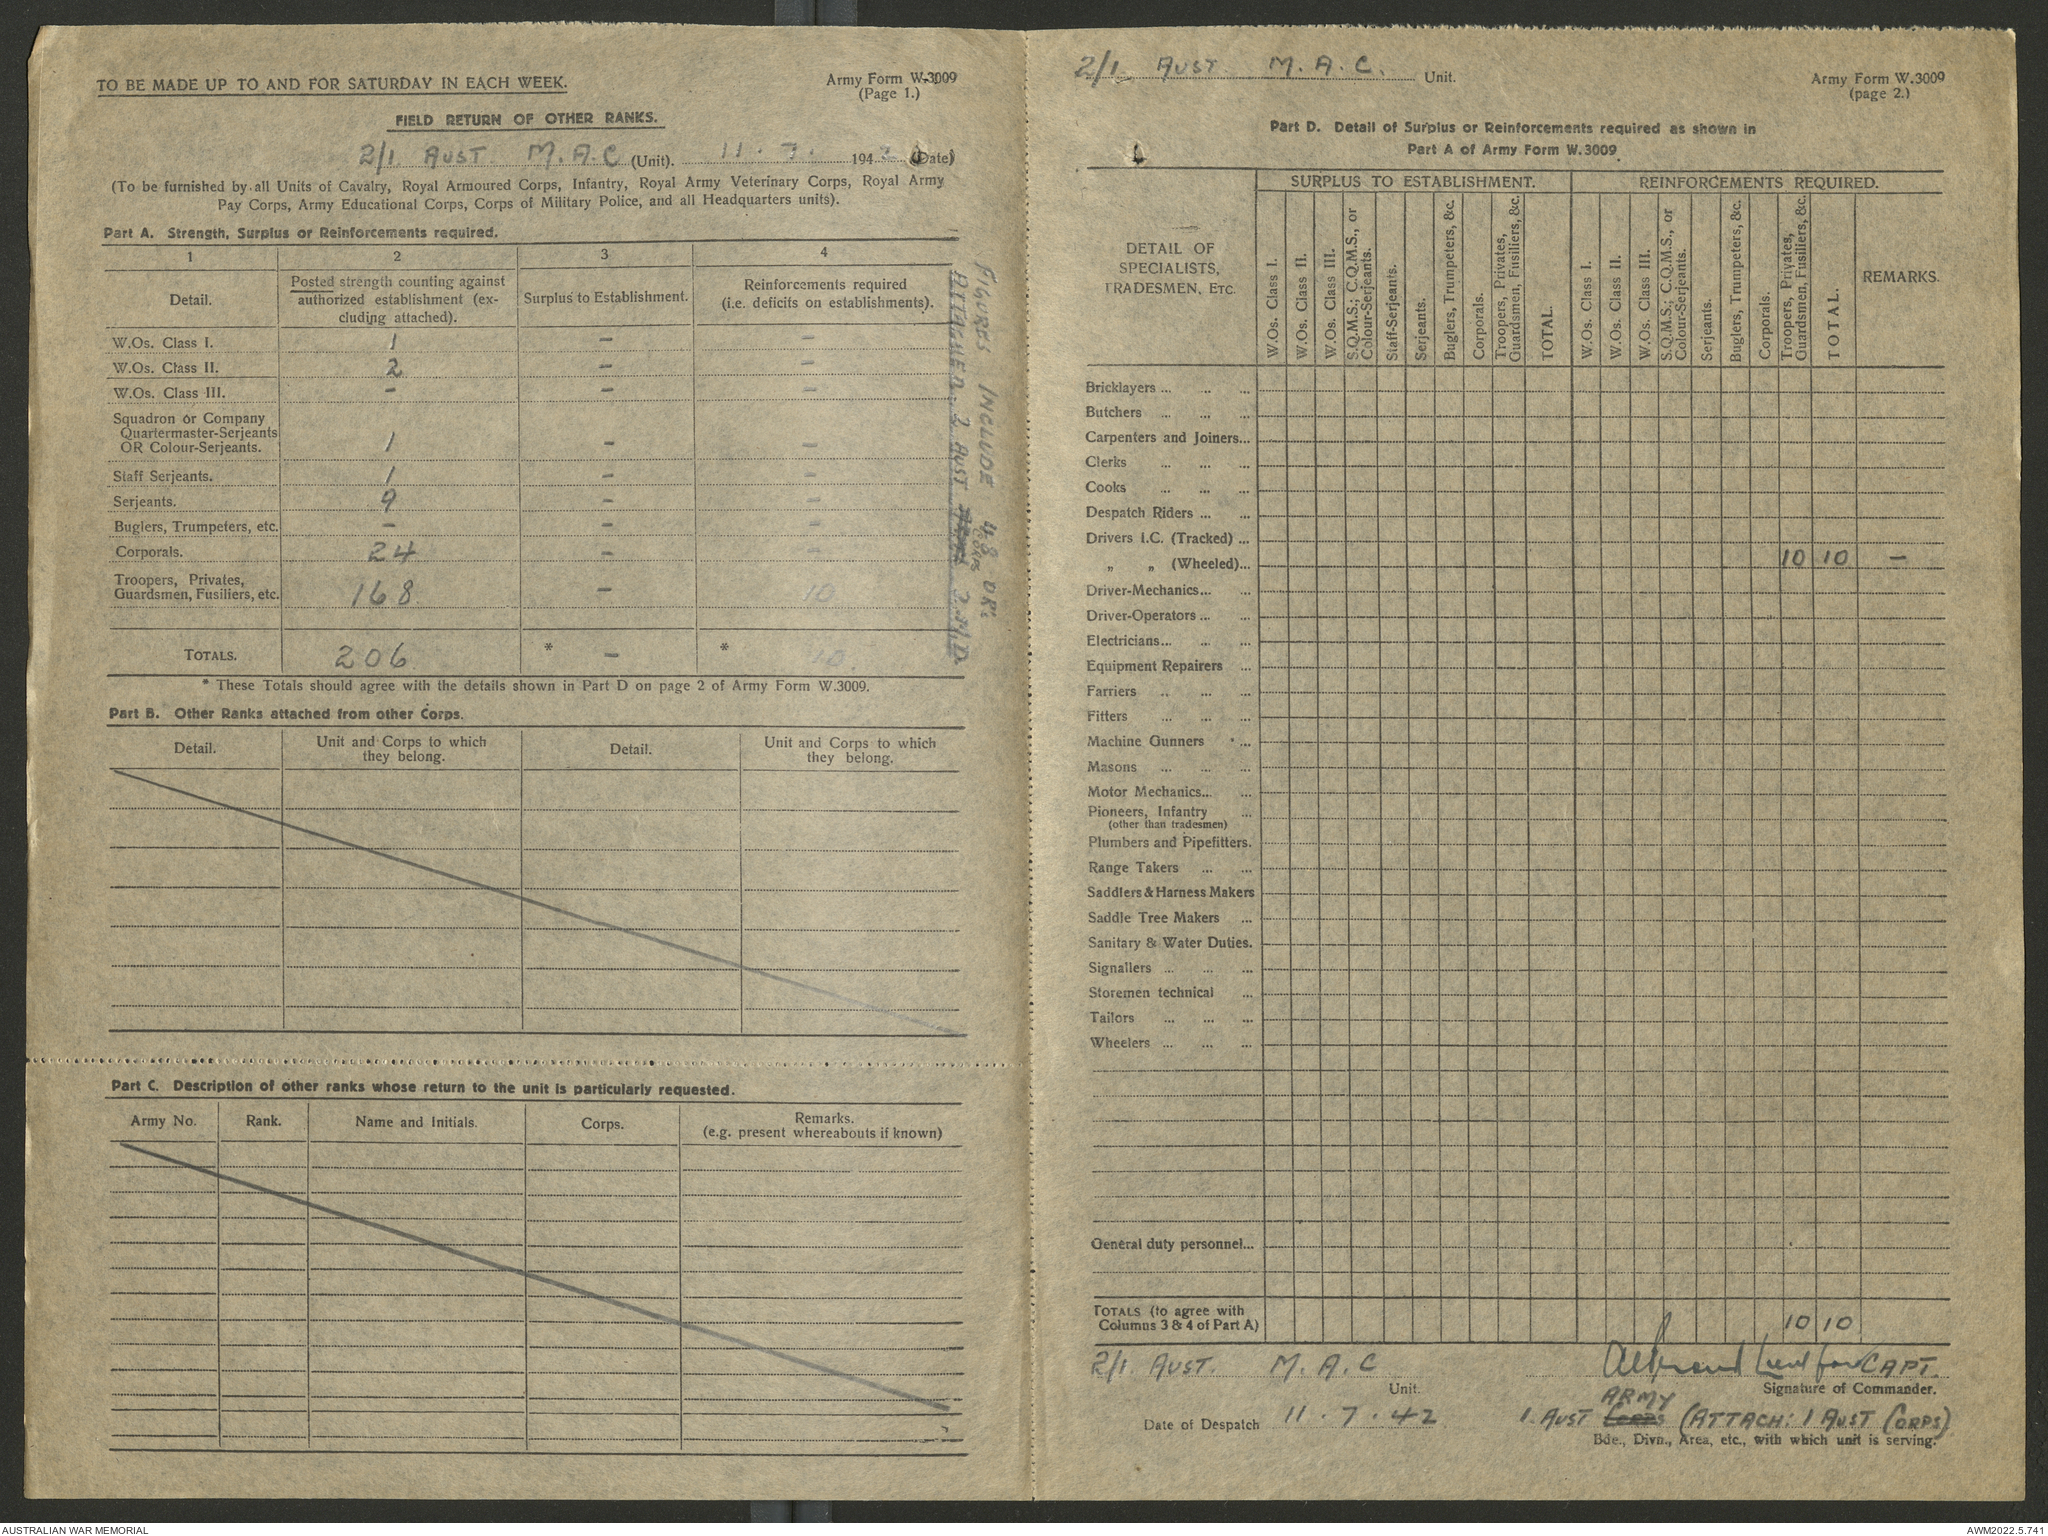 TO BE MADE UP TO AND FOR SATURDAY IN EACH WEEK.
Army Form W.3009
(Page 1.)
FIELD RETURN OF OTHER RANKS.
2/1 AUST. M.A.C (Unit). 11.7. 1942 (Date)
(To be furnished by all Units of Cavalry, Royal Armoured Corps, Infantry, Royal Army Veterinary Corps, Royal Army
Pay Corps, Army Educational Corps, Corps of Military Police, and all Headquarters units).
Part A. Strength, Surplus or Reinforcements required.
1 2 3 4
Detail.
Posted strength counting against
authorized establishment (ex-
cluding attached).
Surplus to Establishment.
Reinforcements required
(i.e. deficits on establishments).
W.Os. Class I. 1 – –
W.Os. Class II. 2 – –
W.Os. Class III. – – –
Squadron or Company
Quartermaster-Serjeants
OR Colour-Serjeants. 1 – –
Staff Serjeants. 1 – –
Serjeants. 9 – –
Buglers, Trumpeters, etc. – – –
Corporals. 24 – –
Troopers, Privates,
Guardsmen, Fusiliers, etc. 168 – 10
TOTALS. 206 * – * 10.
FIGURES INCLUDE 48 ORs
ATTACHED 2 AUST CORPS 2.M.D.
* These Totals should agree with the details shown in Part D on page 2 of Army Form W.3009.
Part B. Other Ranks attached from other Corps.
Detail.
Unit and Corps to which
they belong.
Detail.
Unit and Corps to which
they belong.
Part C. Description of other ranks whose return to the unit is particularly requested.
Army No. Rank. Name and Initials. Corps.
Remarks.
(e.g. present whereabouts if known)
2/1 AUST M.A.C. Unit.
Army Form W.3009
(page 2.)
Part D. Detail of Surplus or Reinforcements required as shown in
Part A of Army Form W.3009.
DETAIL OF
SPECIALISTS,
TRADESMEN, ETC.
SURPLUS TO ESTABLISHMENT.
W.Os. Class I.
W.Os. Class II.
W.Os. Class III.
S.Q.M.S.; C.Q.M.S., or
Colour-Serjeants.
Staff-Serjeants.
Serjeants.
Buglers, Trumpeters, &c.
Corporals.
Troopers, Privates,
Guardsmen, Fusiliers, &c.
TOTAL.
REINFORCEMENTS REQUIRED.
W.Os. Class I.
W.Os. Class II.
W.Os. Class III.
S.Q.M.S.; C.Q.M.S., or
Colour-Serjeants.
Serjeants.
Buglers, Trumpeters, &c.
Corporals.
Troopers, Privates,
Guardsmen, Fusiliers, &c.
TOTAL.
REMARKS.
Bricklayers ... ... ...
Butchers ... ... ...
Carpenters and Joiners...
Clerks ... ... ...
Cooks ... ... ...
Despatch Riders ... ...
Drivers I.C. (Tracked) ...
„ „ (Wheeled)... 10 10 –
Driver-Mechanics... ...
Driver-Operators ... ...
Electricians... ... ...
Equipment Repairers ...
Farriers ... ... ...
Fitters ... ... ...
Machine Gunners ...
Masons ... ... ...
Motor Mechanics... ...
Pioneers, Infantry ...
(other than tradesmen)
Plumbers and Pipefitters.
Range Takers ... ...
Saddlers & Harness Makers
Saddle Tree Makers ...
Sanitary & Water Duties.
Signallers ... ... ...
Storemen technical ...
Tailors ... ... ...
Wheelers ... ... ...
General duty personnel...
TOTALS (to agree with
Columns 3 & 4 of Part A) 10 10
2/1. AUST. M.A.C
Unit.
CAPT.
Signature of Commander.
Date of Despatch 11.7.42
ARMY
1. AUST Corps (ATTACH: 1 AUST CORPS)
Bde., Divn., Area, etc., with which unit is serving.
AUSTRALIAN WAR MEMORIAL
AWM2022.5.741